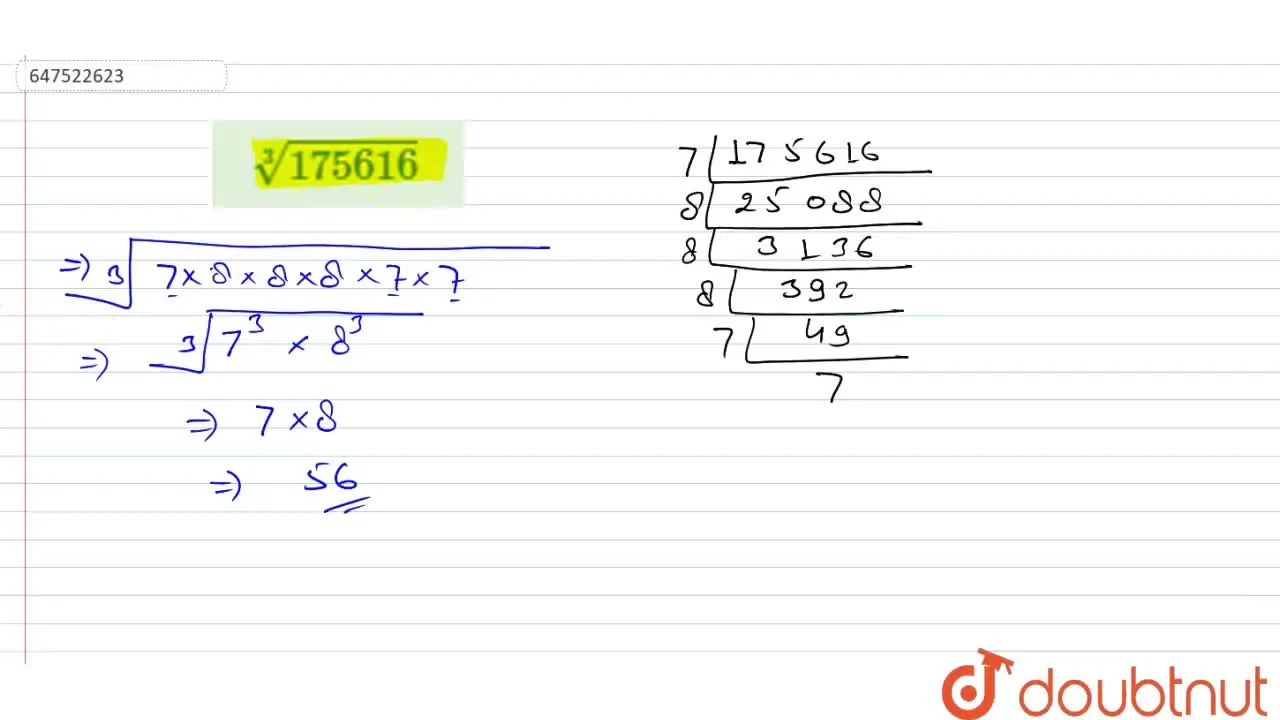 647522623
∛175616
⇒ ∛7×8×8×8×7×7
⇒ ∛7³×8³
⇒ 7×8
⇒ 56
7 | 175616
8 | 25088
8 | 3136
8 | 392
7 | 49
7
doubtnut